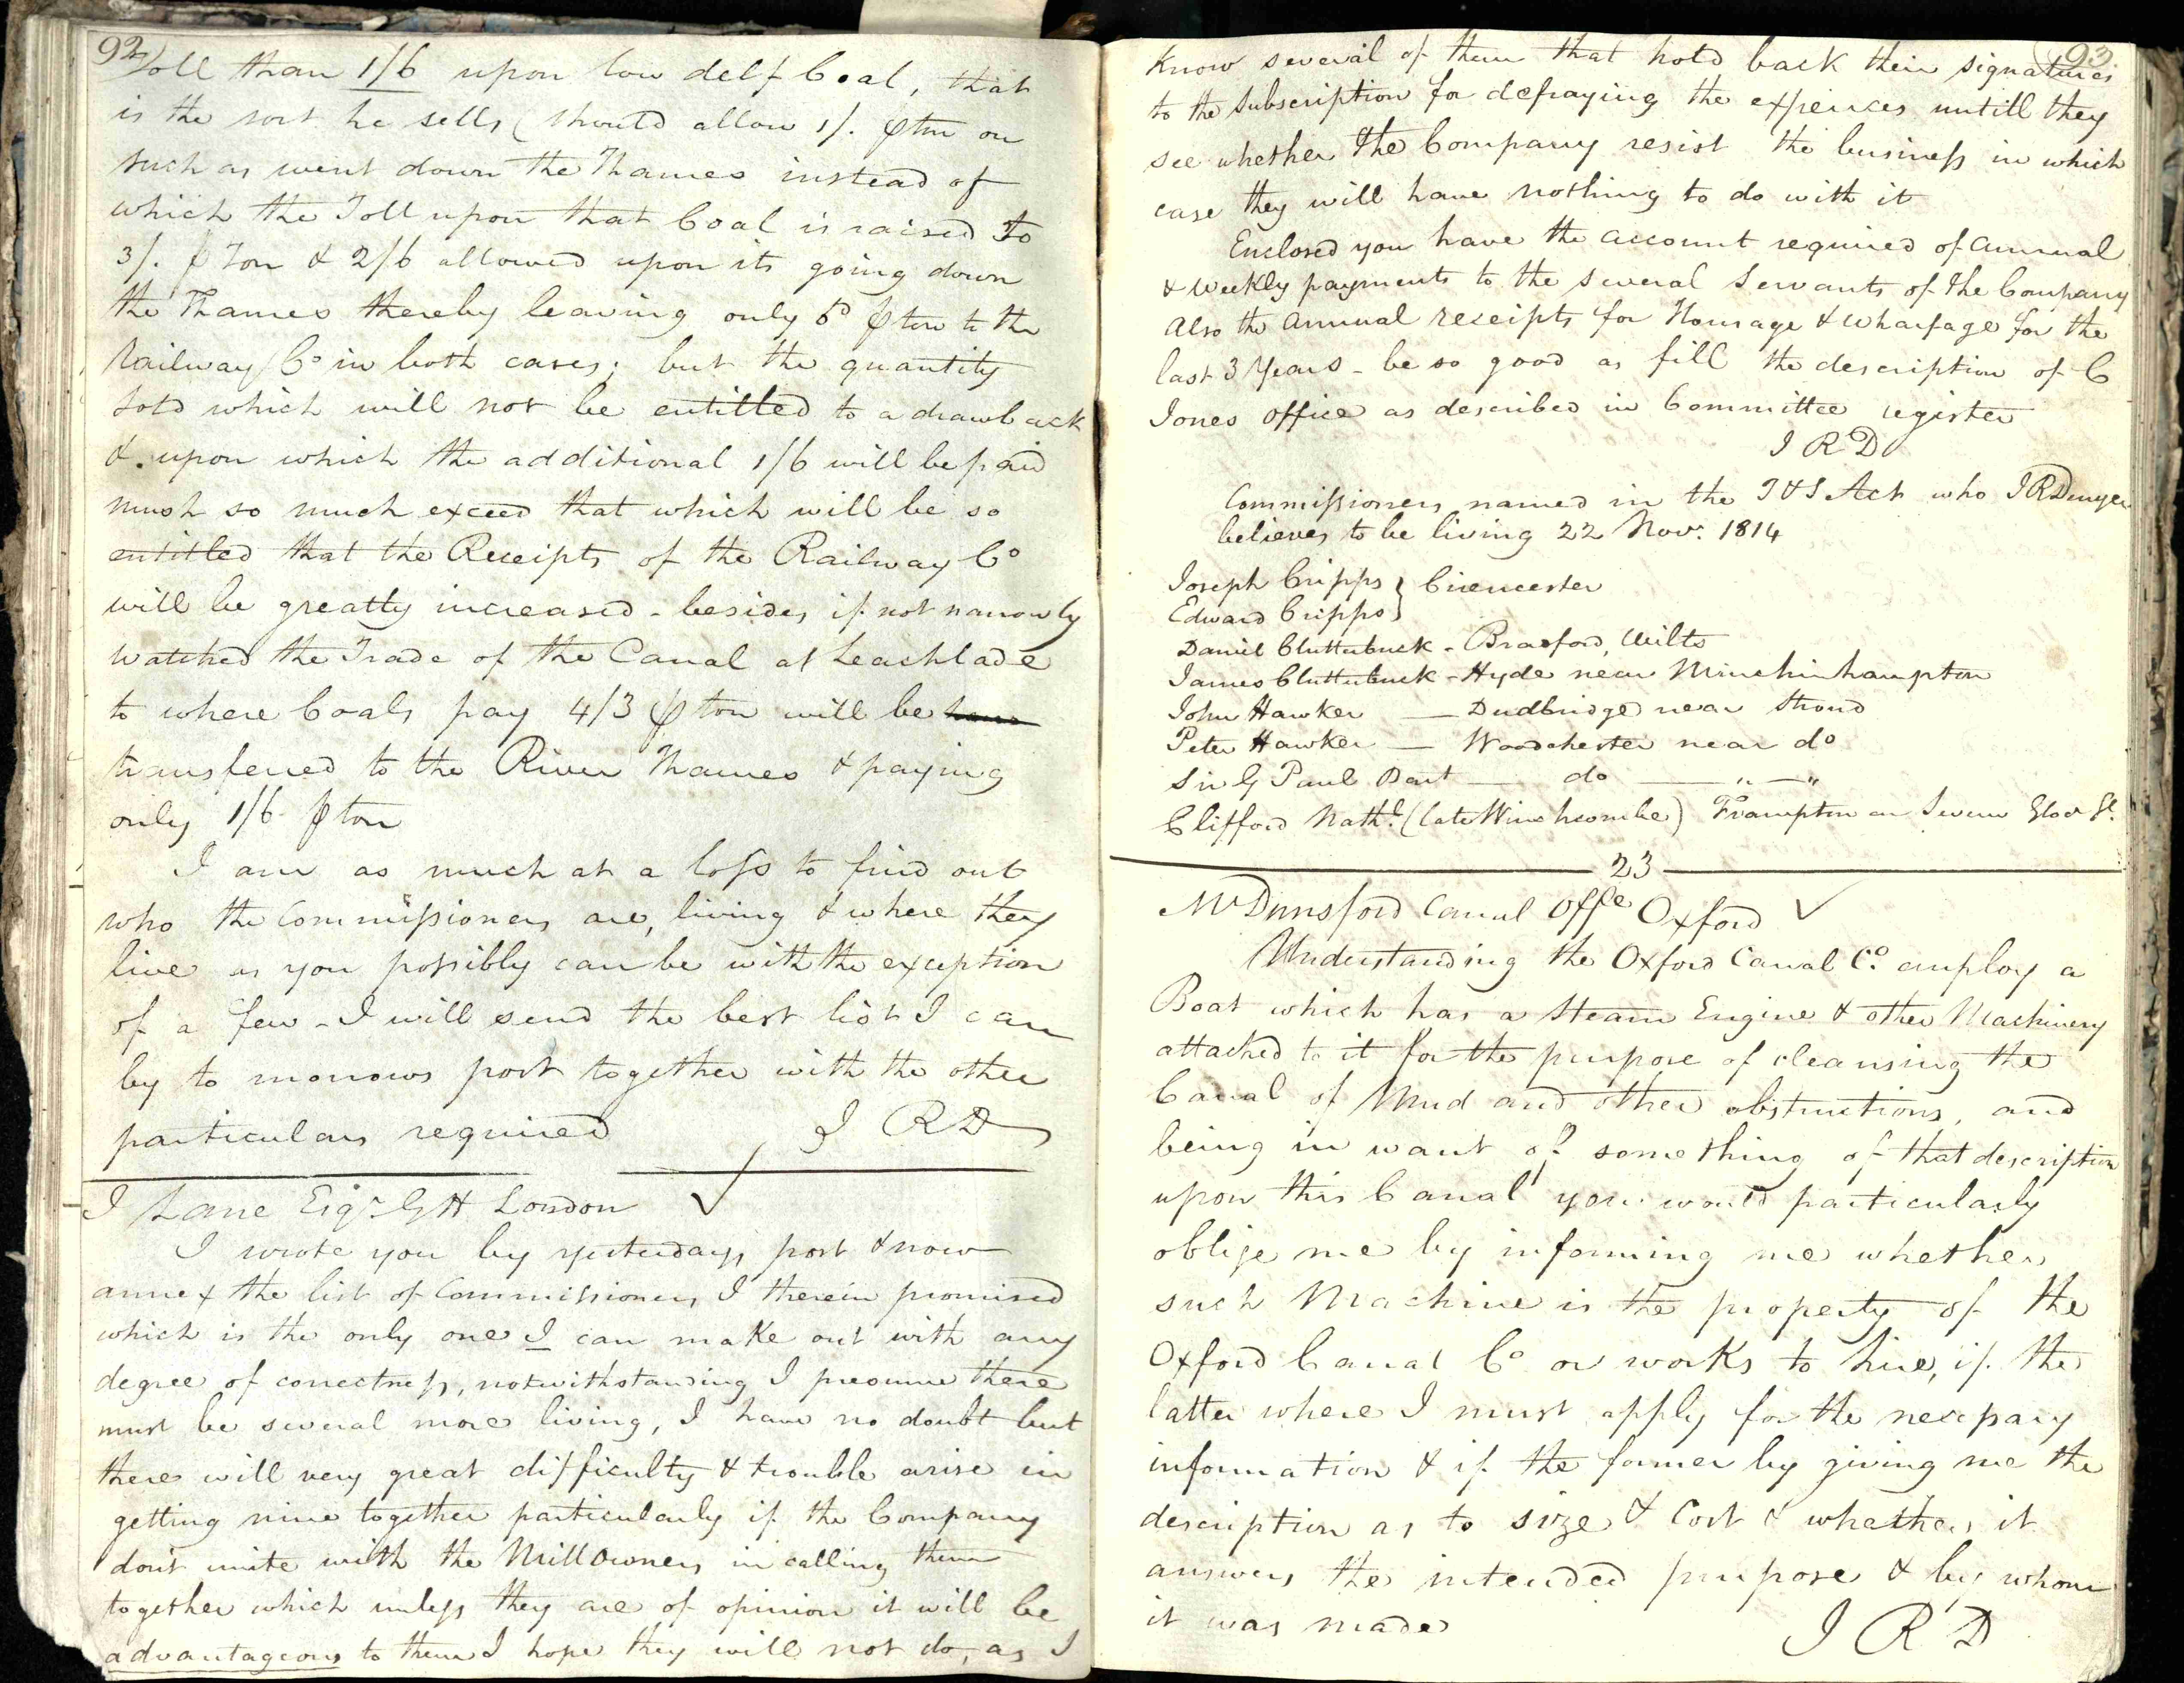 92
Toll than 1/6 upon low delf Coal, that
is the sort he sells (should allow 1/. ⅌ ton on
such as went down the Thames instead of
which the Toll upon that Coal is raised to
3/. ⅌ Ton & 2/6 allowed upon its going down
the Thames thereby leaving only 6d ⅌ ton to the
Railway Co in both cases; but the quantity
sold which will not be entitled to a drawback
& upon which the additional 1/6 will be paid
must so much exceed that which will be so
entitled that the Receipts of the Railway Co
will be greatly increased - besides if not narrowly
watched the Trade of the Canal at Leachlade
to where Coals pay 4/3 ⅌ ton will be
transferred to the River Thames & paying
only 1/6 ⅌ ton
I am as much at a loss to find out
who the Commissioners are, living & where they
live as you possibly can be with the exception
of a few - I will send the best list I can
by to morrows post together with the other
particulars required I R D
I Lane Esqr. G H London ✓
I wrote you by yesterdays post & now
annex the list of Commissioners I therein promised
which is the only one I can make out with any
degree of correctness, notwithstanding I presume there
must be several more living, I have no doubt but
there will very great difficulty & trouble arise in
getting nine together particularly if the Company
dont unite with the Mill Owners in calling them
together which unless they are of opinion it will be
advantageous to them I hope they will not do, as I
93
Know several of them that hold back their signatures
to the Subscription for defraying the expences untill they
see whether the Company resist the business in which
case they will have nothing to do with it
Enclosed you have the account required of annual
& weekly payments to the several Servants of the Company
Also the Annual receipts for Housage & wharfage for the
last 3 Years - be so good as fill the description of C
Jones office as described in Committee register
I R D
Commissioners named in the T & S Act who I R Denyer
believes to be living 22 Nov. 1814
Joseph Cripps } Cirencester
Edward Cripps }
Daniel Clutterbuck - Bradford, Wilts
James Clutterbuck - Hyde near Minchinhampton
John Hawker — Dudbridge near Stroud
Peter Hawker — Woodchester near do
Sir G Paul Bart — do — " — "
Clifford Nathl. (late Winchcombe) Frampton on Severn Glos
23
Mr Dunsford Canal Offe Oxford ✓
Understanding the Oxford Canal Co. employ a
Boat which has a Steam Engine & other Machinery
attached to it for the purpose of cleansing the
Canal of Mud and other obstructions, and
being in want of something of that description
upon this Canal you would particularly
oblige me by informing me whether
such Machine is the property of the
Oxford Canal Co or works to hire, if the
latter where I must apply for the necessary
information & if the former by giving me the
description as to size & Cost & whether it
answers the intended purpose & by whom
it was made I R D